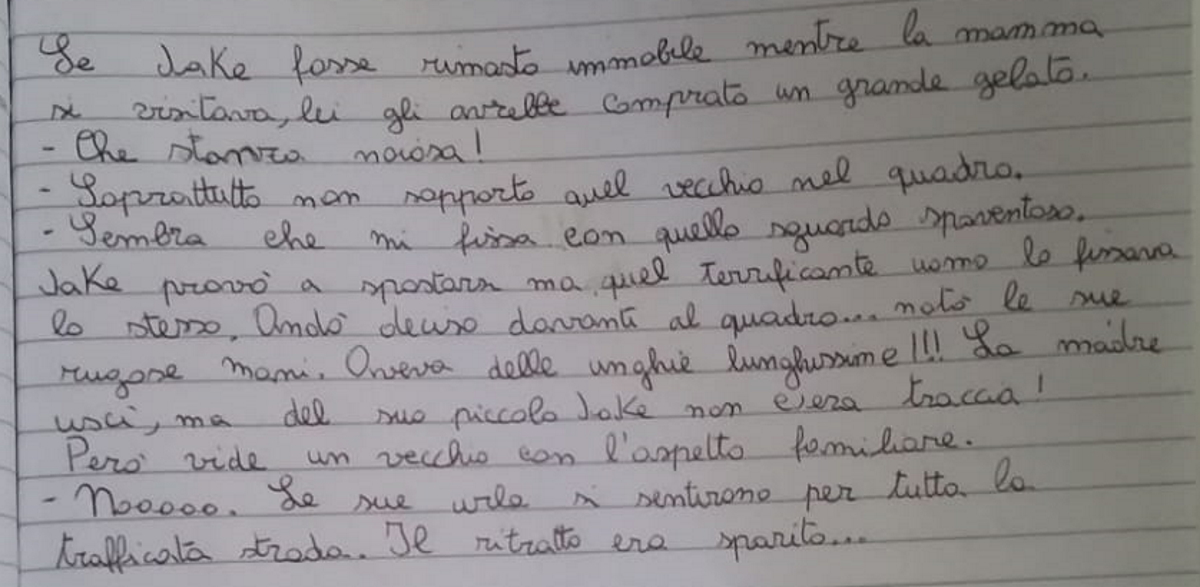 Se Jake fosse rimasto immobile mentre la mamma
si visitava, lei gli avrebbe comprato un grande gelato.
- Che stanza noiosa!
- Soprattutto non sopporto quel vecchio nel quadro.
- Sembra che mi fissa con quello sguardo spaventoso.
Jake provò a spostarsi ma quel terrificante uomo lo fissava
lo stesso. Andò deciso davanti al quadro... notò le sue
rugose mani. Aveva delle unghie lunghissime!!! La madre
uscì, ma del suo piccolo Jake non c'era traccia!
Però vide un vecchio con l'aspetto familiare.
- Nooooo. Le sue urla si sentirono per tutta la
trafficata strada. Il ritratto era sparito...